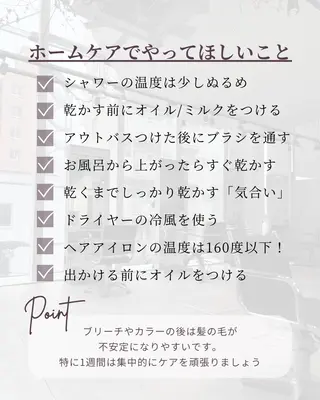 ホームケアでやってほしいこと
シャワーの温度は少しぬるめ
乾かす前にオイル/ミルクをつける
アウトバスつけた後にブラシを通す
お風呂から上がったらすぐ乾かす
乾くまでしっかり乾かす「気合い」
ドライヤーの冷風を使う
ヘアアイロンの温度は160度以下！
出かける前にオイルをつける
Point
ブリーチやカラーの後は髪の毛が
不安定になりやすいです。
特に1週間は集中的にケアを頑張りましょう